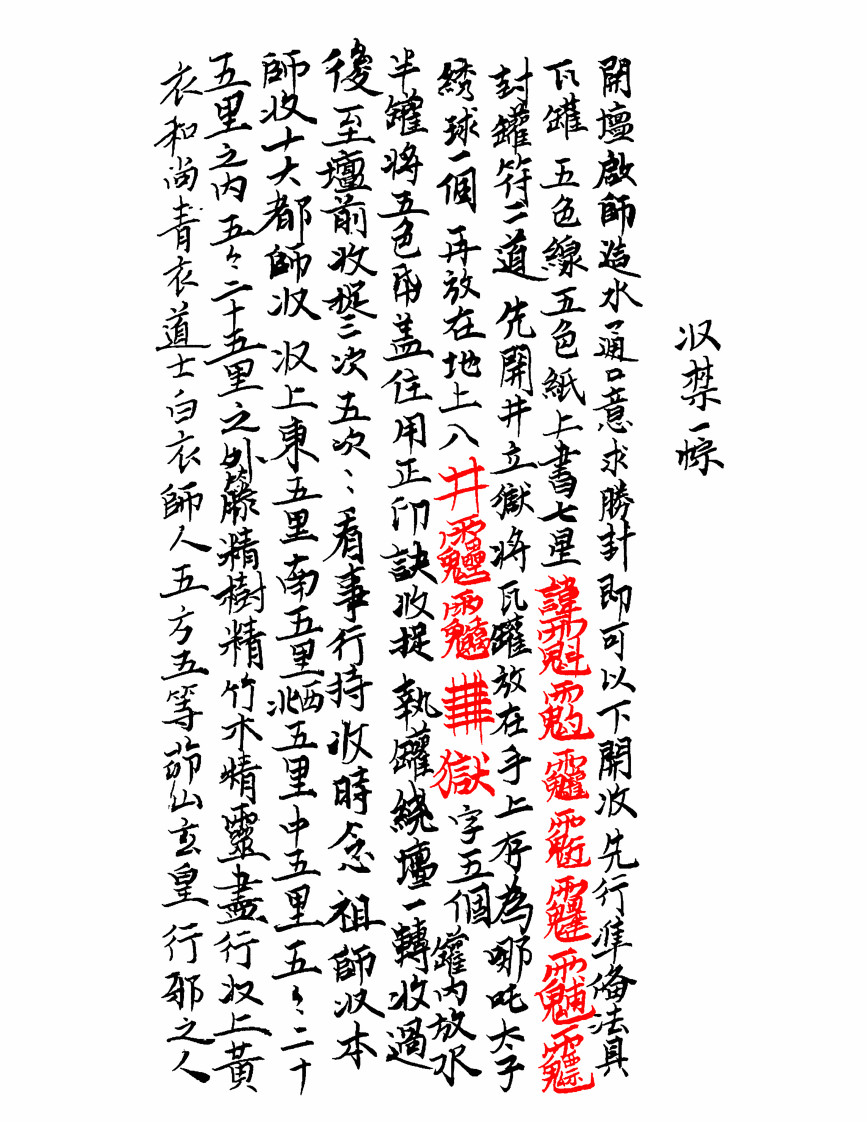 収禁一宗
開壇啟師造水通口意求勝計即可以下開收先行準备法具
瓦罐五色線五色紙上書七星諱
封罐符二道先開井立獄將瓦罐放在手上存為哪吒太子
綉球一個再放在地上八井獄字五個罐内放水
半罐將五色帋盖住用正印訣收捉執罐绕壇一轉收過
後至壇前收捉三次五次〻看事行持收時念祖師収本
師收十大都師収収上東五里南五里西北五里中五里五〻二十
五里之内五〻二十五里之外籐精樹精竹木精靈盡行収上黃
衣和尚青衣道士白衣師人五方五等茆山玄皇行邪之人